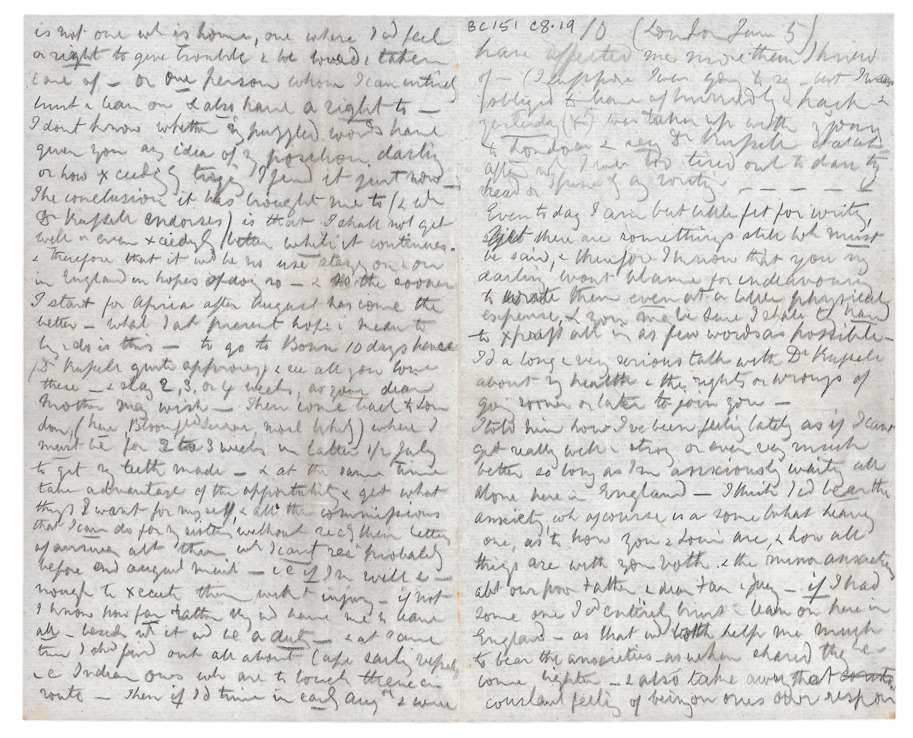 is not one wh is home, one where I'd feel
a right to give trouble & be loved & taken
care of - or one person whom I can entirely
trust & lean on & also have a right to -
I dont know whether my puzzled words have
given you any idea of my position, darling
or how xceedg trying I find it just now -
The conclusion it has brought me to (& wh
Dr Küpper endorses) is that I shall not get
well or even xceedgly better while it continues.
& therefore that it wd be no use staying on & on
in England in hopes of doing so - & the sooner
I start for Africa after August has come the
better - what I at present hope & mean to
try & do is this - to go to Bonn 10 days hence
Dr Küpper quite approving & see all you love
there - & stay 2, 3, or 4 weeks, as your dear
Mother may wish - Then come back to Lon
don, (here Bloomfield most likely) where I
must be for 2 to 3 weeks in latter 1/2 July
to get my teeth made - & at the same time
take advantage of the opportunity & get what
things I want for myself, & all the commissions
that I can do for my sisters without recg their letters
of answer abt them wh I cant rec probably
before end august mail - i e if I'm well e-
nough to xecute them without injury - if not
I know how far rather they wd have me to leave
all - besides wh it wd be a duty - & at same
time I shd find out all about Cape sailg vessels
i e Indian ones who are to touch there en
route - Then if I'd time in early augst & were
BC151 C8.19 10 (London June 5)
have affected me more than I knew
of - (I suppose I was going to say - but I was
obliged to leave off hurriedly & back &
yesterday (4) was taken up with going
to London & seeg Dr Küpper &
after wh I were too tired out to dare to
head or spine by writg - - - - -
Even today I am but little fit for writg,
yet there are somethings still wh must
be said, & therefore I know that you my
darling wont blame for endeavouring
to write them even at a little physical
expense, & you may be sure I shall try hard
to xpress all in as few words as possible -
I'd a long & very serious talk with Dr Küpper
about my health & the rights or wrongs of
going sooner or later to join you -
I told him how I've been feelg lately as if I cant
get really well & strong or even very much
better so long as I'm anxiously waitg all
alone here in England - I think I'd bear the
anxiety wh of course is a somewhat heavy
one, as to how you & down are, & how all
things are with you both & the minor anxiety
abt our poor Father, & dear Fan & Jucy - if I had
some one I'd entirely trust & lean on here in
England - as that wd both help me much
to bear the anxieties - as when shared they be-
come lighter - & also take away that
constant feelg of being on ones own respon